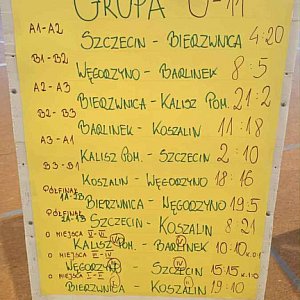 GRUPA U-11
A1-A2 SZCZECIN - BIERZWNICA 4:20
B1-B2 WĘGORZYNO - BARLINEK 8:5
A2-A3 BIERZWNICA - KALISZ POM. 21:2
B2-B3 BARLINEK - KOSZALIN 11:18
A3-A1 KALISZ POM. - SZCZECIN 2:10
B3-B1 KOSZALIN - WĘGORZYNO 18:16
PÓŁFINAŁ 1A-2B BIERZWNICA - WĘGORZYNO 19:5
PÓŁFINAŁ SZCZECIN - KOSZALIN 8:21
O MIEJSCA V-VI KALISZ POM. - BARLINEK 10:10 K.
O MIEJSCA WĘGORZYNO - SZCZECIN 15:15
O MIEJSCA I-II BIERZWNICA - KOSZALIN 19:10